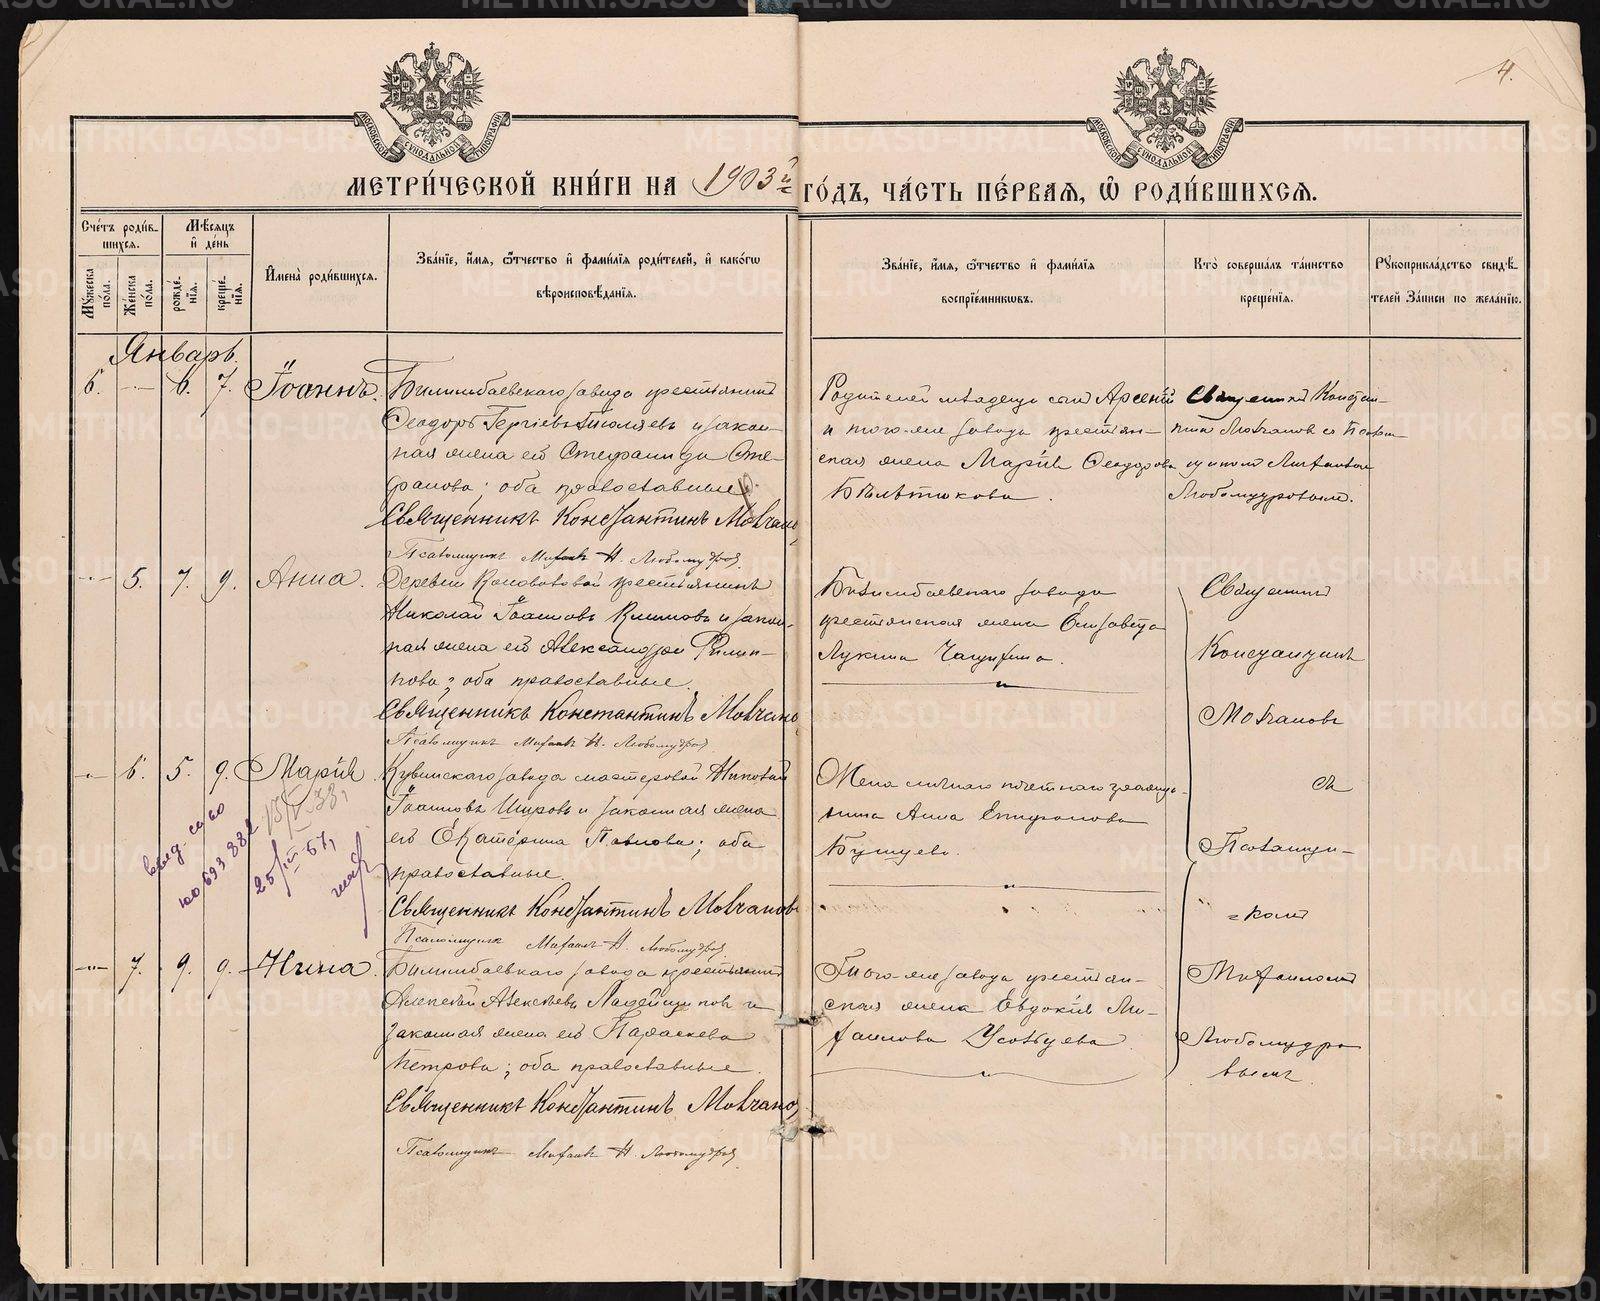 4.
МОСКОВСКОЙ СѴНОДАЛЬНОЙ ТИПОГРАФІИ
МОСКОВСКОЙ СѴНОДАЛЬНОЙ ТИПОГРАФІИ
МЕТРИ́ЧЕСКОЙ КНИ́ГИ НА 1903й ГО́ДЪ, ЧА́СТЬ ПЕ́РВАѦ, Ѡ҆ РОДИ́ВШИХСѦ.
Сче́тъ роди́в-
шихсѧ.
Мꙋ́жеска по́ла.
Же́нска по́ла.
Мѣ́сѧцъ
и҆ де́нь
рожде́-
нїѧ.
креще́-
нїѧ.
И҆мена̀ роди́вшихсѧ.
Зва́нїе, и҆́мѧ, ѻ҆́тчество и҆ фами́лїѧ роди́телей, и҆ како́гѡ
вѣроисповѣ́данїѧ.
Зва́нїе, и҆́мѧ, ѻ҆́тчество и҆ фами́лїѧ
воспрїе́мникѡвъ.
Кто̀ соверша́лъ та́инство
креще́нїѧ.
Рꙋкоприкла́дство свидѣ́-
телей За́писи по жела́нїю.
Январь.
6. — 6. 7. Іоаннъ.
Билимбаевскаго завода крестьянинъ
Ѳеодоръ Георгіевъ и закон-
ная жена его Стефанида Сте-
фанова; оба православные.
Священникъ Константинъ Молчановъ
Псаломщикъ Михаилъ Н. Любомудровъ
Родителей младенца сынъ Арсеній
и того-же завода крестьян-
ская жена Марія Ѳеодорова
Священникъ Констан-
тинъ Молчановъ съ Псалом-
щикомъ Михаиломъ
Любомудровымъ.
— 5. 7. 9. Анна.
Деревни Коноваловой крестьянинъ
Николай Іоанновъ Климовъ и закон-
ная жена его Александра Филип-
пова; оба православные.
Священникъ Константинъ Молчановъ
Псаломщикъ Михаилъ Н. Любомудровъ
Билимбаевскаго завода
крестьянская жена Елизавета
Лукина
Священникъ
Константинъ
Молчановъ
съ
Псаломщи-
=комъ
Михаиломъ
Любомудро
вымъ.
— 6. 5. 9. Марія.
Кувинскаго завода мастеровой Николай
Іоанновъ Шировъ и законная жена
его Екатерина Павлова; оба
православные.
Священникъ Константинъ Молчановъ
Псаломщикъ Михаилъ Н. Любомудровъ
Жена личнаго почетнаго гражда-
нина Анна Епифанова
выд. св во
юо 693 882
25/III 57,
— 7. 9. 9. Нина.
Билимбаевскаго завода крестьянинъ
Алексій Алексѣевъ Ладейщиковъ и
законная жена его Параскева
Петрова; оба православные.
Священникъ Константинъ Молчановъ
Псаломщикъ Михаилъ Н. Любомудровъ
Того-же завода крестьян-
ская жена Евдокія Ми-
хаилова Усольцева.